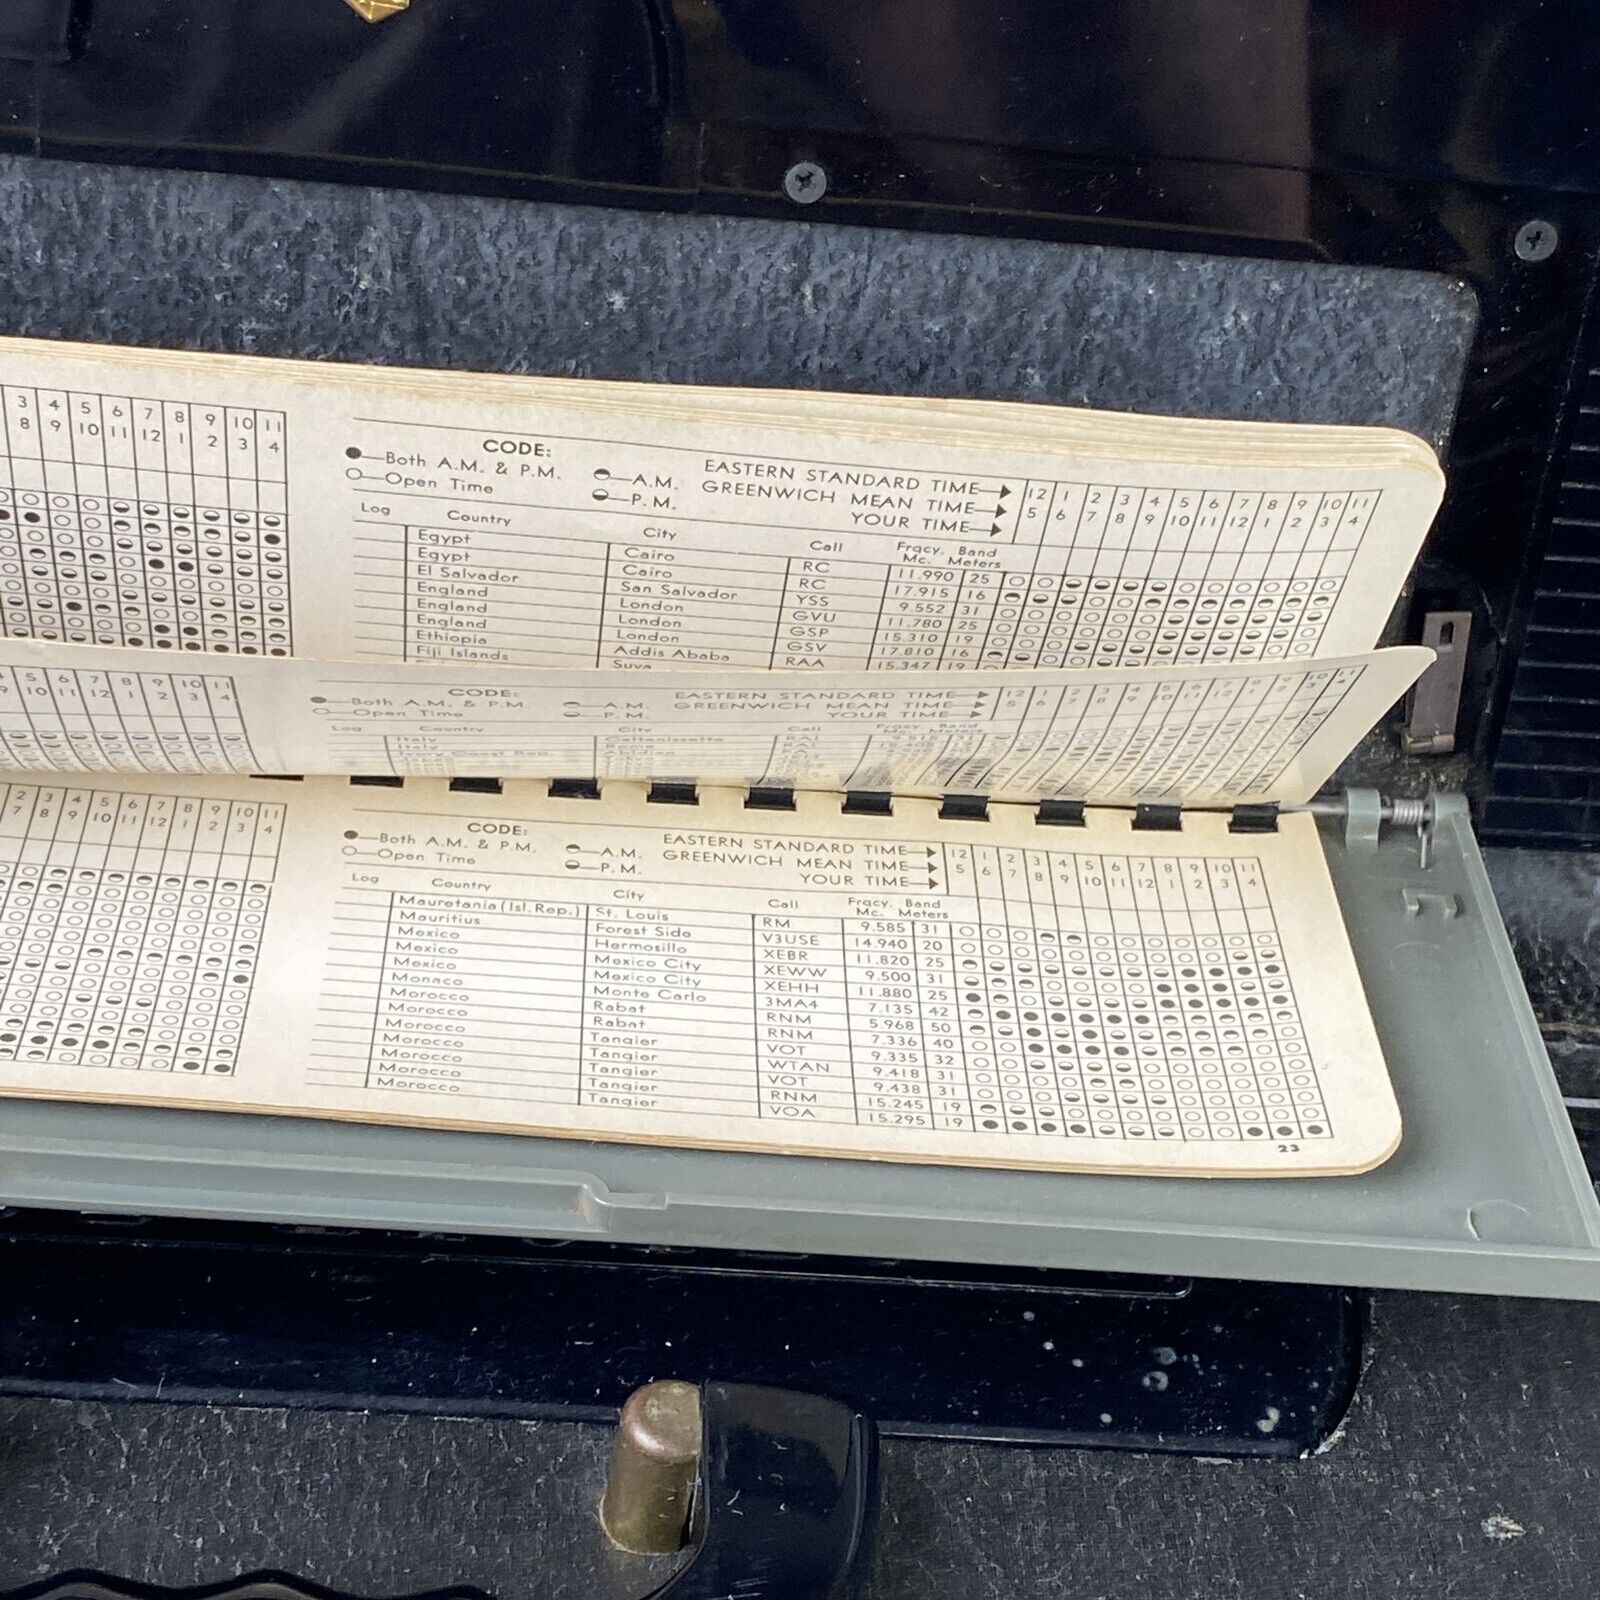 3 4 5 6 7 8 9 10 11
8 9 10 11 12 1 2 3 4
CODE:
Both A.M. & P.M.
Open Time
A.M.
P.M.
EASTERN STANDARD TIME 12 1 2 3 4 5 6 7 8 9 10 11
GREENWICH MEAN TIME 5 6 7 8 9 10 11 12 1 2 3 4
YOUR TIME
Log Country City Call Frqcy. Mc. Band Meters
Egypt Cairo RC 11.990 25
Egypt Cairo RC 17.915 16
El Salvador San Salvador YSS 9.552 31
England London GVU 11.780 25
England London GSP 15.310 19
England London GSV 17.810 16
Ethiopia Addis Ababa RAA 15.347 19
Fiji Islands Suva
5 6 7 8 9 10 11
9 10 11 12 1 2 3 4
CODE:
Both A.M. & P.M.
Open Time
A.M.
P.M.
EASTERN STANDARD TIME 12 1 2 3 4 5 6 7 8 9 10 11
GREENWICH MEAN TIME 5 6 7 8 9 10 11 12 1 2 3 4
YOUR TIME
Log Country City Call Frqcy. Band
Italy Caltanissetta
Italy Rome
Ivory Coast Rep. Abidjan
2 3 4 5 6 7 8 9 10 11
7 8 9 10 11 12 1 2 3 4
CODE:
Both A.M. & P.M.
Open Time
A.M.
P.M.
EASTERN STANDARD TIME 12 1 2 3 4 5 6 7 8 9 10 11
GREENWICH MEAN TIME 5 6 7 8 9 10 11 12 1 2 3 4
YOUR TIME
Log Country City Call Frqcy. Mc. Band Meters
Mauretania (Isl. Rep.) St. Louis RM 9.585 31
Mauritius Forest Side V3USE 14.940 20
Mexico Hermosillo XEBR 11.820 25
Mexico Mexico City XEWW 9.500 31
Mexico Mexico City XEHH 11.880 25
Monaco Monte Carlo 3MA4 7.135 42
Morocco Rabat RNM 5.968 50
Morocco Rabat RNM 7.336 40
Morocco Tangier VOT 9.335 32
Morocco Tangier WTAN 9.418 31
Morocco Tangier VOT 9.438 31
Morocco Tangier RNM 15.245 19
Morocco Tangier VOA 15.295 19
23